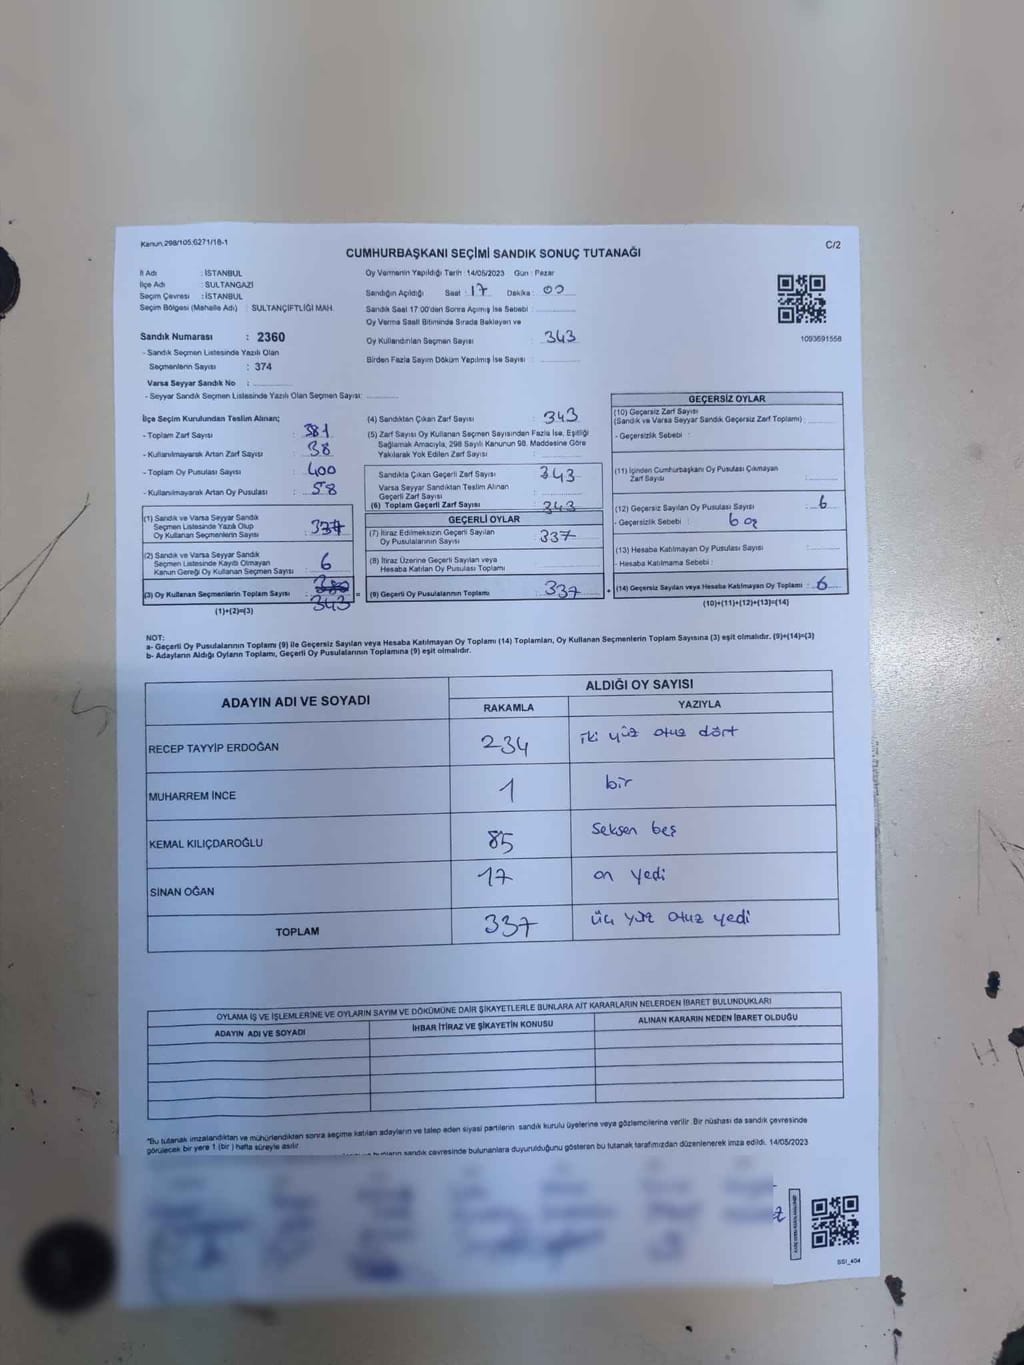 Kanun.298/105:6271/16-1
C/2
CUMHURBAŞKANI SEÇİMİ SANDIK SONUÇ TUTANAĞI
İl Adı : İSTANBUL
İlçe Adı : SULTANGAZİ
Seçim Çevresi : İSTANBUL
Seçim Bölgesi (Mahalle Adı) : SULTANÇİFTLİĞİ MAH.
Sandık Numarası : 2360
- Sandık Seçmen Listesinde Yazılı Olan
Seçmenlerin Sayısı : 374
Varsa Seyyar Sandık No :
- Seyyar Sandık Seçmen Listesinde Yazılı Olan Seçmen Sayısı:
Oy Vermenin Yapıldığı Tarih :14/05/2023 Gün : Pazar
Sandığın Açıldığı Saat : 17 Dakika : 00
Sandık Saat 17.00'den Sonra Açmış İse Sebebi :
Oy Verme Saati Bitiminde Sırada Bekleyen ve
Oy Kullandırılan Seçmen Sayısı : 343
Birden Fazla Sayım Döküm Yapılmış İse Sayısı :
1093691556
İlçe Seçim Kurulundan Teslim Alınan;
- Toplam Zarf Sayısı : 381
- Kullanılmayarak Artan Zarf Sayısı : 38
- Toplam Oy Pusulası Sayısı : 400
- Kullanılmayarak Artan Oy Pusulası : 58
(1) Sandık ve Varsa Seyyar Sandık
Seçmen Listesinde Yazılı Olup
Oy Kullanan Seçmenlerin Sayısı : 337
(2) Sandık ve Varsa Seyyar Sandık
Seçmen Listesinde Kayıtlı Olmayan
Kanun Gereği Oy Kullanan Seçmen Sayısı : 6
(3) Oy Kullanan Seçmenlerin Toplam Sayısı : 343
(1)+(2)=(3)
(4) Sandıktan Çıkan Zarf Sayısı : 343
(5) Zarf Sayısı Oy Kullanan Seçmen Sayısından Fazla İse, Eşitliği
Sağlamak Amacıyla, 298 Sayılı Kanunun 98. Maddesine Göre
Yakılarak Yok Edilen Zarf Sayısı :
Sandıkta Çıkan Geçerli Zarf Sayısı : 343
Varsa Seyyar Sandıktan Teslim Alınan
Geçerli Zarf Sayısı :
(6) Toplam Geçerli Zarf Sayısı : 343
GEÇERLİ OYLAR
(7) İtiraz Edilmeksizin Geçerli Sayılan
Oy Pusulalarının Sayısı : 337
(8) İtiraz Üzerine Geçerli Sayılan veya
Hesaba Katılan Oy Pusulası Toplamı :
(9) Geçerli Oy Pusulalarının Toplamı : 337
GEÇERSİZ OYLAR
(10) Geçersiz Zarf Sayısı
(Sandık ve Varsa Seyyar Sandık Geçersiz Zarf Toplamı) :
- Geçersizlik Sebebi :
(11) İçinden Cumhurbaşkanı Oy Pusulası Çıkmayan
Zarf Sayısı :
(12) Geçersiz Sayılan Oy Pusulası Sayısı : 6
- Geçersizlik Sebebi :
(13) Hesaba Katılmayan Oy Pusulası Sayısı :
- Hesaba Katılmama Sebebi :
(14) Geçersiz Sayılan veya Hesaba Katılmayan Oy Toplamı : 6
(10)+(11)+(12)+(13)=(14)
NOT:
a- Geçerli Oy Pusulalarının Toplamı (9) ile Geçersiz Sayılan veya Hesaba Katılmayan Oy Toplamı (14) Toplamları, Oy Kullanan Seçmenlerin Toplam Sayısına (3) eşit olmalıdır. (9)+(14)=(3)
b- Adayların Aldığı Oyların Toplamı, Geçerli Oy Pusulalarının Toplamına (9) eşit olmalıdır.
ADAYIN ADI VE SOYADI
ALDIĞI OY SAYISI
RAKAMLA YAZIYLA
RECEP TAYYİP ERDOĞAN 234 iki yüz otuz dört
MUHARREM İNCE 1 bir
KEMAL KILIÇDAROĞLU 85 seksen beş
SİNAN OĞAN 17 on yedi
TOPLAM 337 üç yüz otuz yedi
OYLAMA İŞ VE İŞLEMLERİNE VE OYLARIN SAYIM VE DÖKÜMÜNE DAİR ŞİKAYETLERLE BUNLARA AİT KARARLARIN NELERDEN İBARET BULUNDUKLARI
ADAYIN ADI VE SOYADI İHBAR İTİRAZ VE ŞİKAYETİN KONUSU ALINAN KARARIN NEDEN İBARET OLDUĞU
"Bu tutanak imzalandıktan ve mühürlendikten sonra seçime katılan adayların ve talep eden siyasi partilerin sandık kurulu üyelerine veya gözlemcilerine verilir. Bir nüshası da sandık çevresinde
görülecek bir yere 1 (bir) hafta süreyle asılır.
sandık çevresinde bulunanlara duyurulduğunu gösteren bu tutanak tarafımızdan düzenlenerek imza edildi. 14/05/2023
SSİ_404